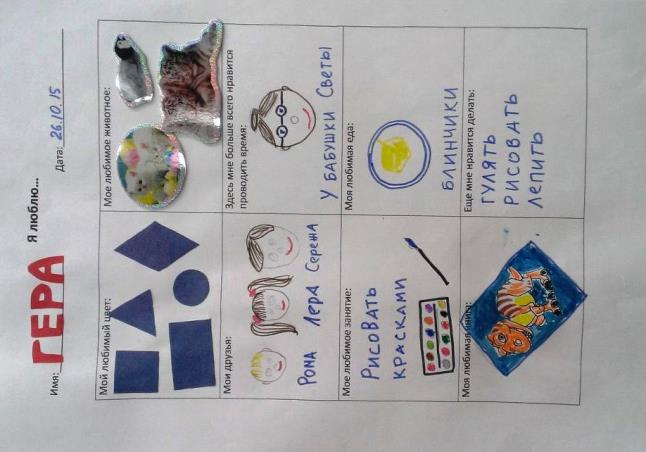 Я люблю...
Имя: ГЕРА
Дата: 26.10.15
Мой любимый цвет:
Мое любимое животное:
Мои друзья:
Рома Лера Сережа
Здесь мне больше всего нравится
проводить время:
У БАБУШКИ СВЕТЫ
Мое любимое занятие:
РИСОВАТЬ
КРАСКАМИ
Моя любимая еда:
БЛИНЧИКИ
Моя любимая книга:
Еще мне нравится делать:
ГУЛЯТЬ
РИСОВАТЬ
ЛЕПИТЬ